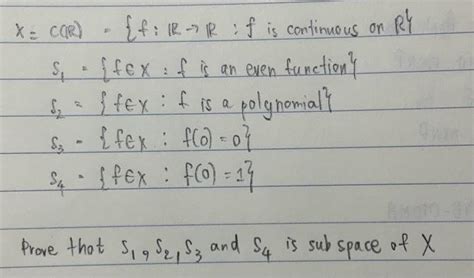 X = C(R) = {f : R → R : f is continuous on R}
S₁ = {f ∈ X : f is an even function}
S₂ = {f ∈ X : f is a polynomial}
S₃ = {f ∈ X : f(0) = 0}
S₄ = {f ∈ X : f(0) = 1}
Prove that S₁, S₂, S₃ and S₄ is subspace of X